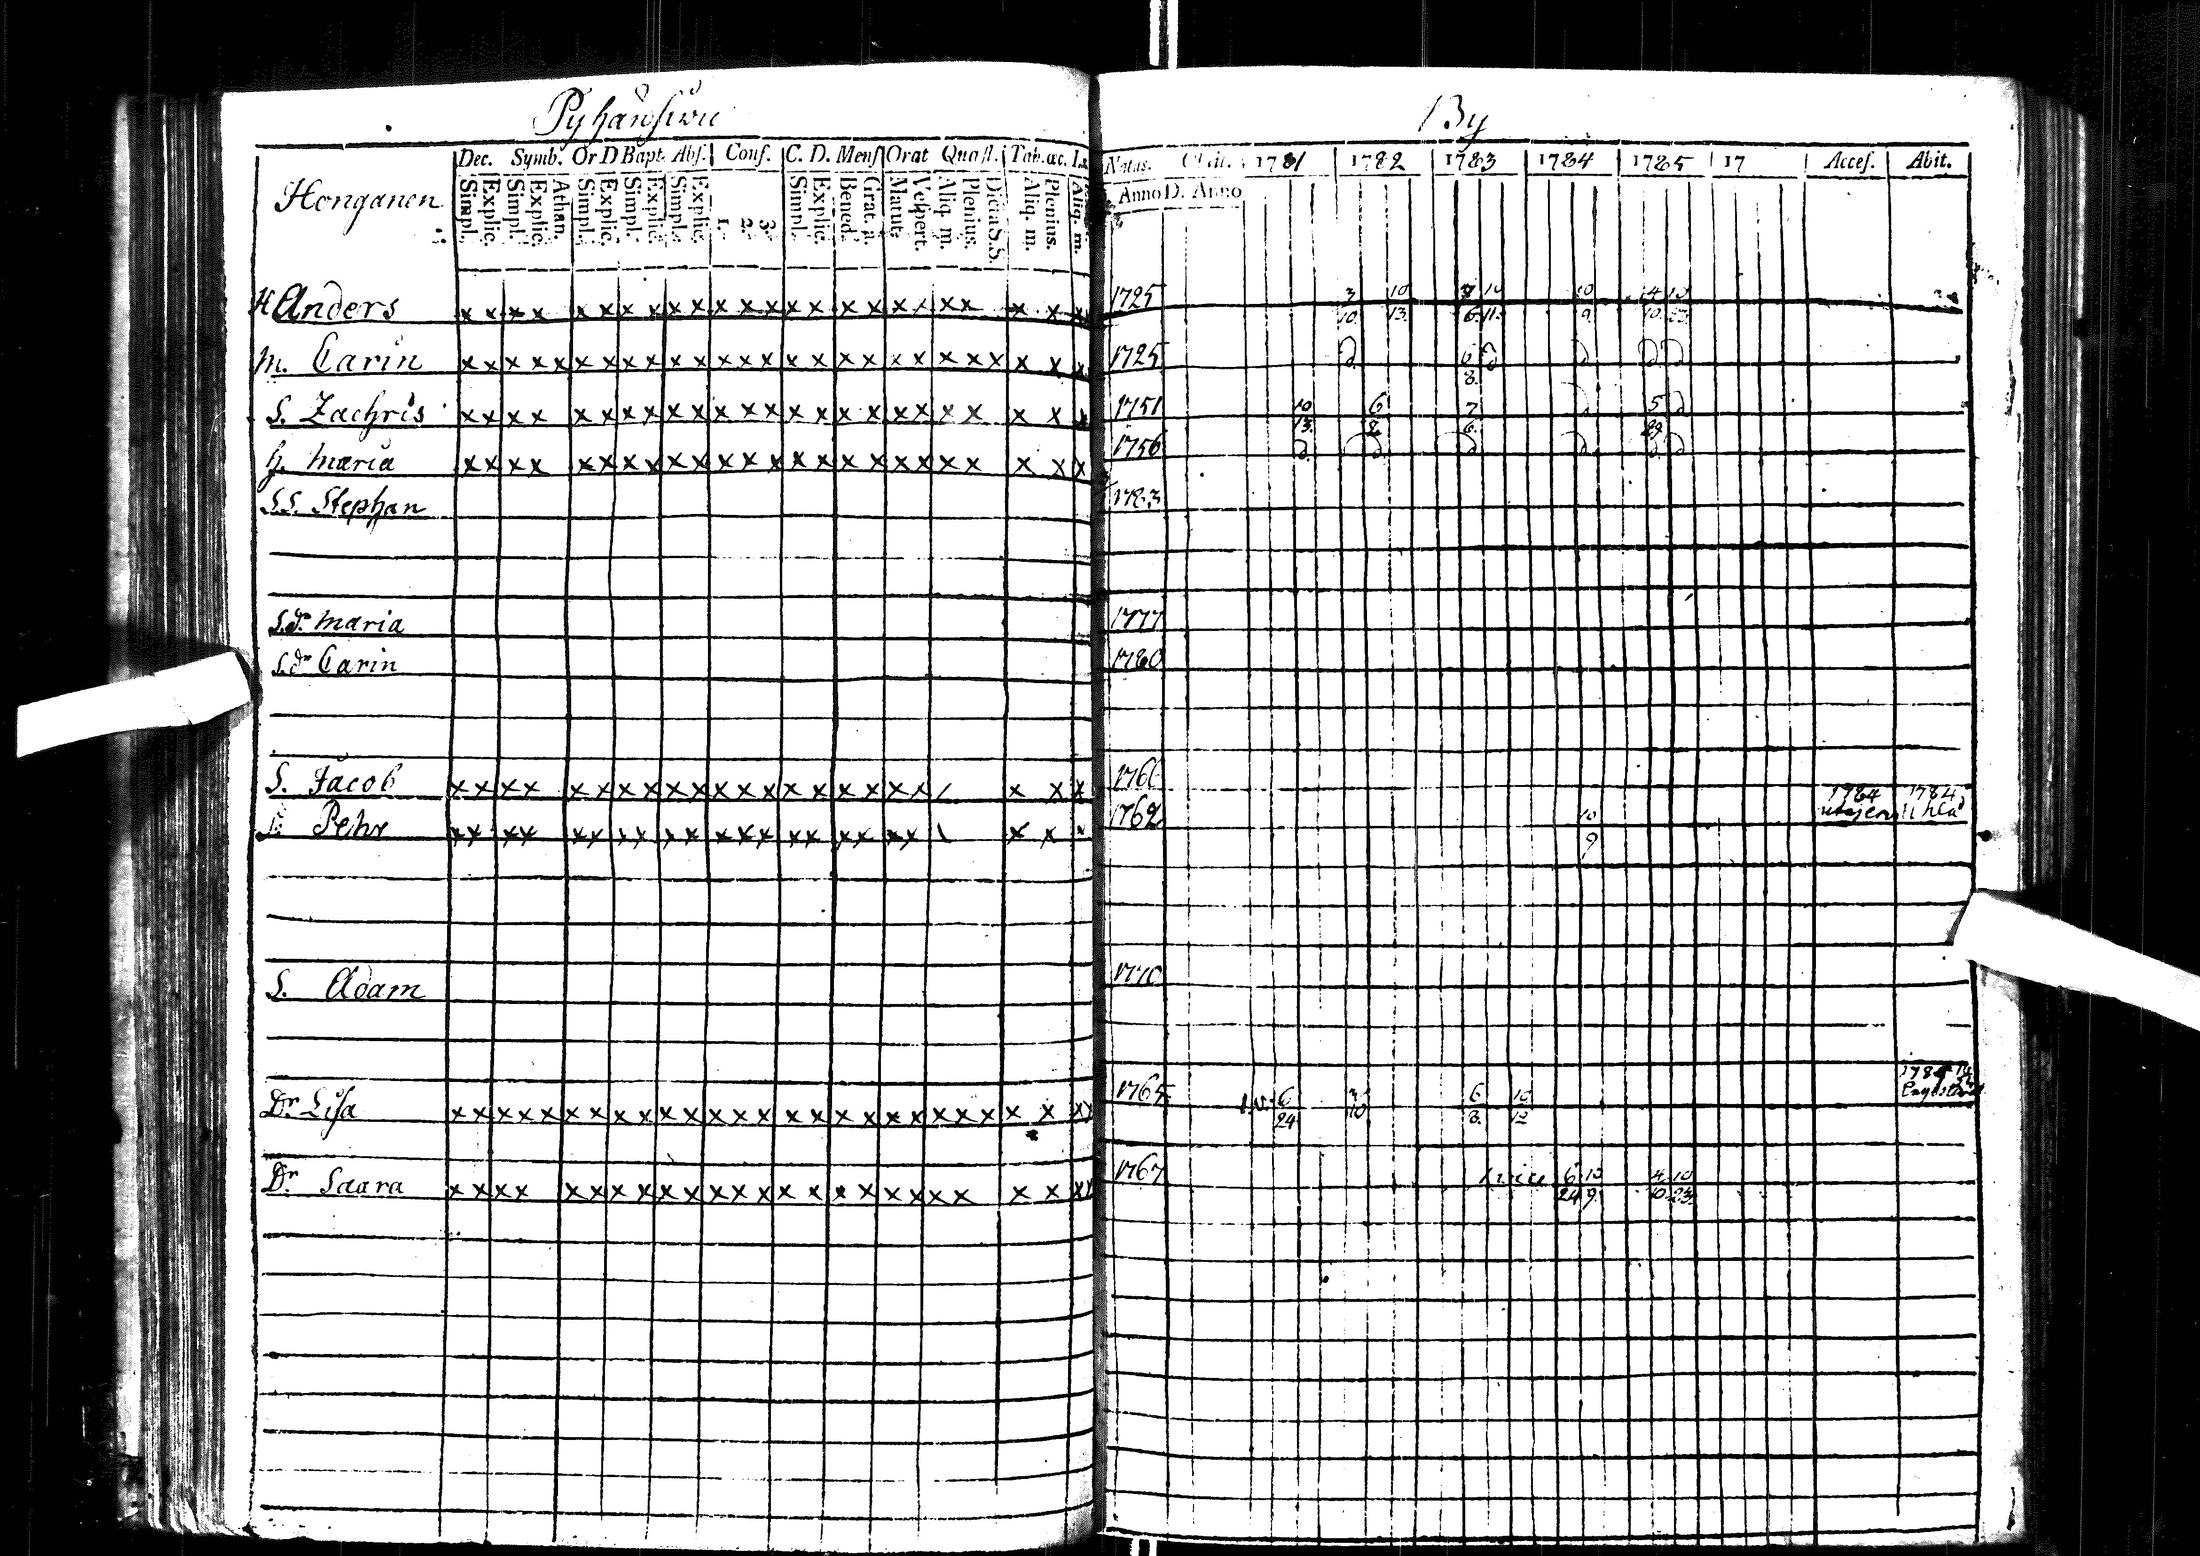 Pyhänsiwu By
Dec. Symb. Or D Bapt. Abs. Conf. C. D. Mens Orat Quæst. Tab. œc.
Natus. 1781 1782 1783 1784 1785 17 Acces. Abit.
Simpl. Explic. Simpl. Explic. Athan. Simpl. Explic. Simpl. Explic. Simpl. Explic. 1. 2. 3. Simpl. Explic. Bened. Grat. a. Matut. Vespert. Aliq. m. Plenius. Dicta S.S. Aliq. m. Plenius. Aliq. m.
Anno D. Anno
Honganen
H Anders x x x x x x x x x x x x x x x x x x x x x x x x 1725 3/10 10/13 7/6 10/11 10/9 4/10 10/23
m. Carin x x x x x x x x x x x x x x x x x x x x x x x x x x 1725 6/8
S. Zachris x x x x x x x x x x x x x x x x x x x x x x x x 1751 10/13 6/2 7/6 5/29
h. maria x x x x x x x x x x x x x x x x x x x x x x x x 1756
S.S. Stephan 1783
S.dr maria 1777
S.dr Carin 1780
S. Jacob x x x x x x x x x x x x x x x x x x x / x x x 176
S. Pehr x x x x x x x x x x x x x x x x x x x \ x x 1762 10/9 1784 1784
S. Adam 1770
Dr Lisa x x x x x x x x x x x x x x x x x x x x x x x x x x x 1765 6/24 3/10 6/8 10/12
Dr Saara x x x x x x x x x x x x x x x x x x x x x x x x x 1767 1 vice 6/24 10/9 4/10 10/23